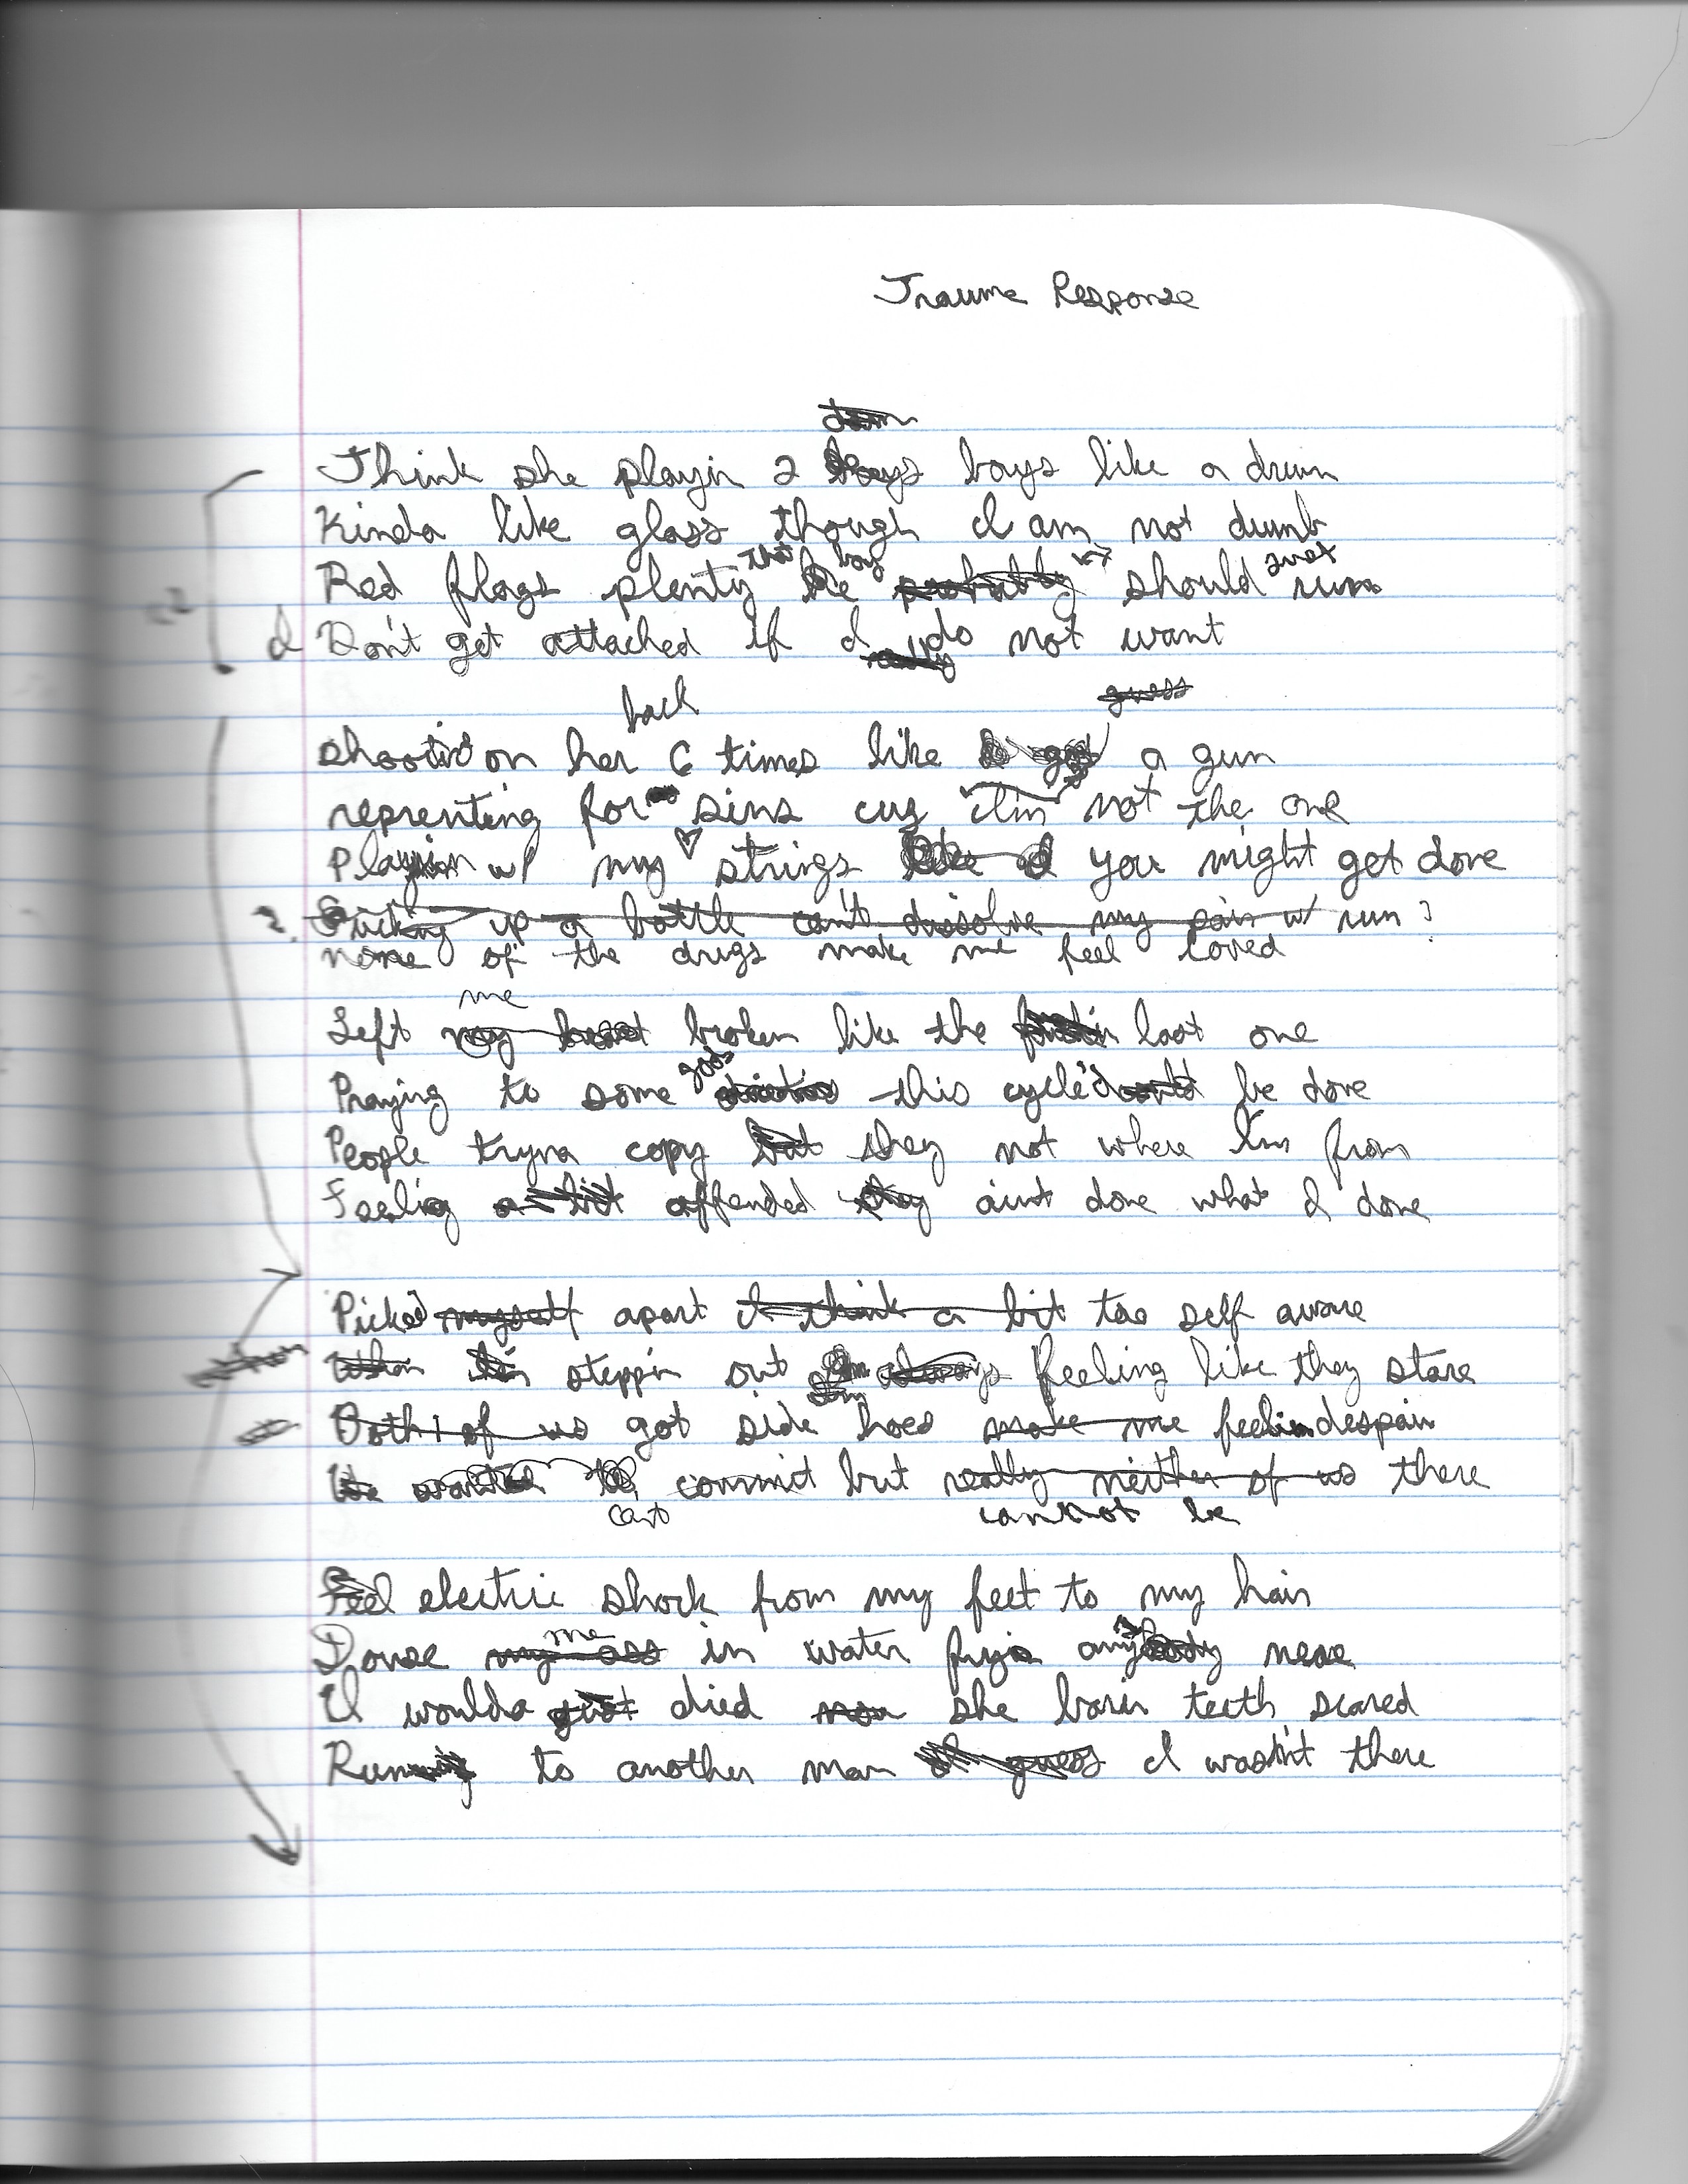 Trauma Response
Think she playin 2 boys like a drum
Kinda like glass though I am not dumb
Red flags plenty that boy should just run
I Don't get attached if I do not want
back
shootin on her 6 times like a gun
reprenting for sins cuz I'm not the one
Playin w/ my ♡ strings you might get done
up a bottle can't dissolve my pain w/ rum ?
none of the drugs make me feel loved
me
Left broken like the last one
Praying to some gods this cycle'd be done
People tryna copy they not where I'm from
Feeling offended aint done what I done
Picked apart too self aware
steppin out feeling like they stare
Both of us got side hoes make me feelin despair
commit but really neither of us there
cant cannot be
Feel electric shock from my feet to my hair
me
Douse my ass in water fryin any near
I woulda just died she barin teeth scared
Run to another man I wasn't there